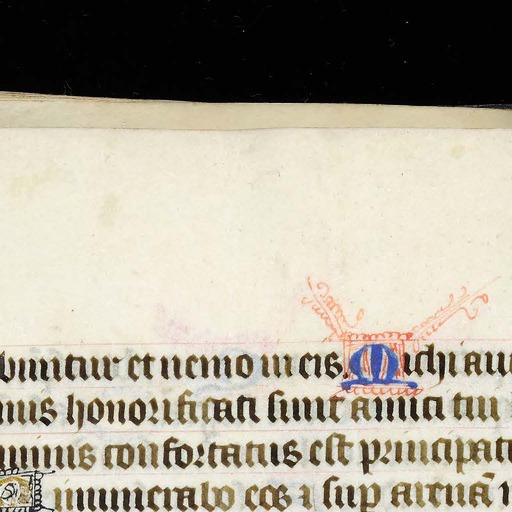 buntur et nemo in eis. Michi au
nus honorificati sunt amici tui
nimis confortatus est principat
inumerabo eos ⁊ sup arenā